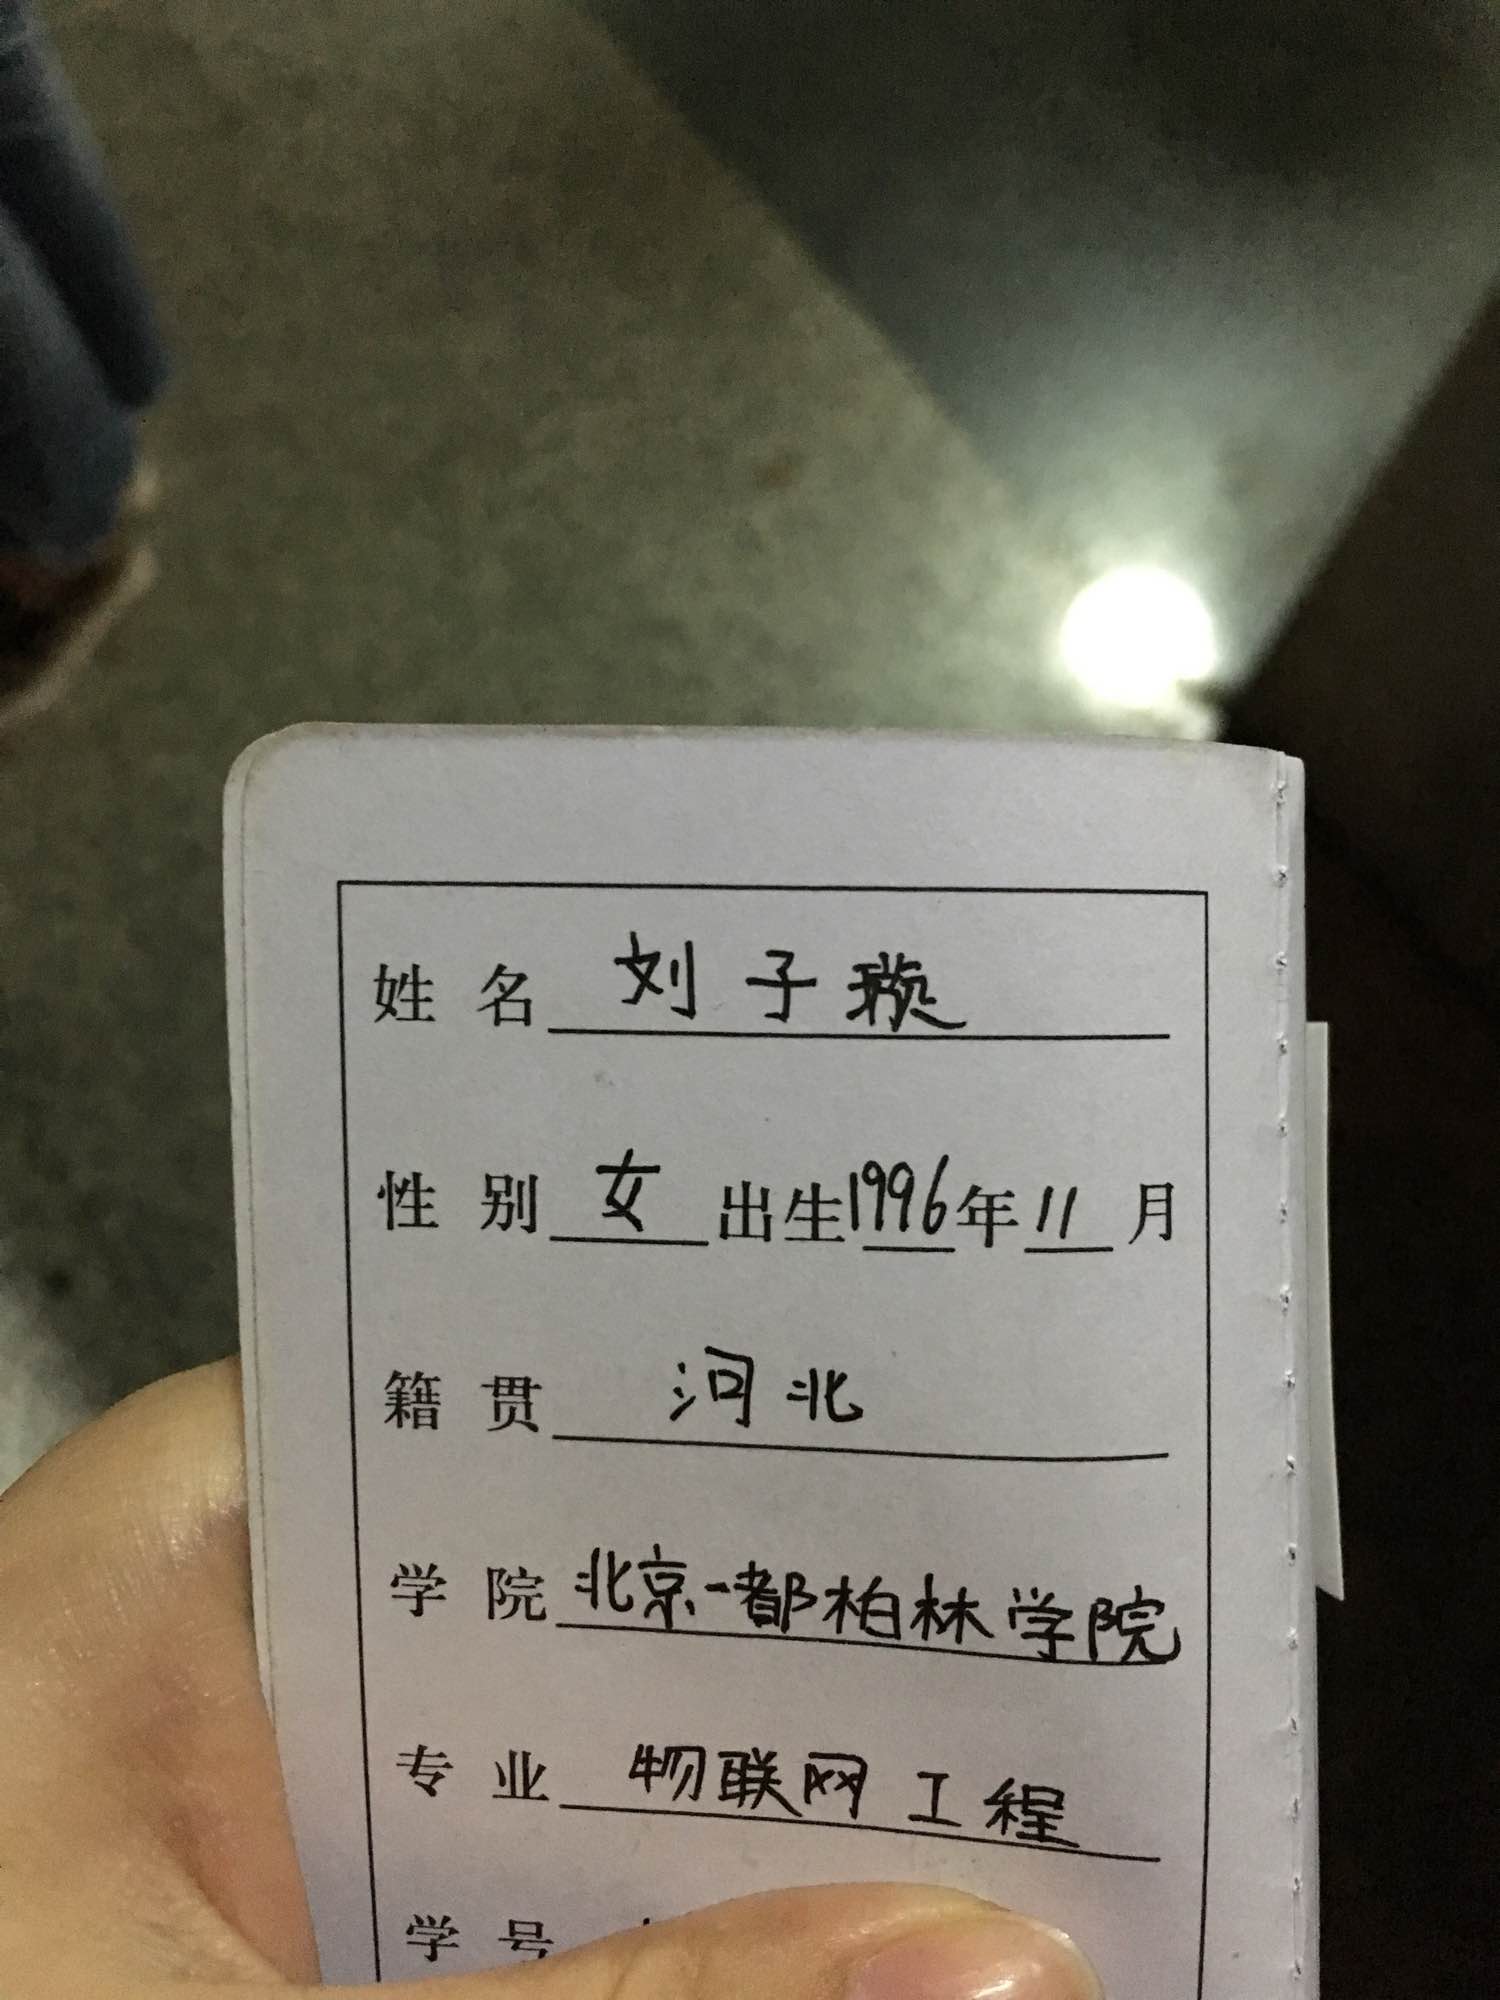 姓 名 刘子璇
性 别 女 出生1996年11月
籍 贯 河北
学 院 北京-都柏林学院
专 业 物联网工程
学 号